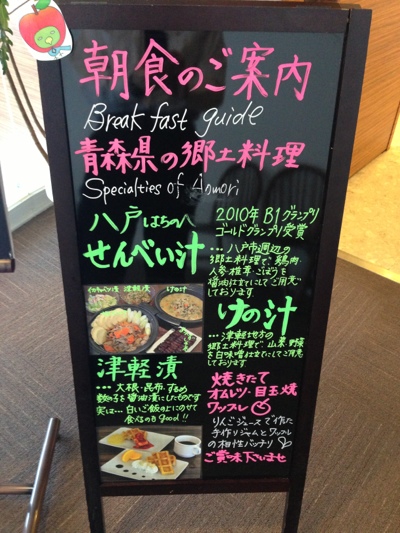 朝食のご案内
Break fast guide
青森県の郷土料理
Specialties of Aomori
八戸はちのへ
せんべい汁
2010年 B1グランプリ
ゴールドグランプリ受賞
… 八戸市周辺の
郷土料理で、鶏肉
人参 椎茸 ごぼうを
醤油仕立てにしてご用意
しております
けの汁
… 津軽地方の
郷土料理で、山菜 野菜
を白味噌仕立てにしてご用意
しております
津軽漬
… 大根・昆布・するめ
数の子を醤油漬にしたものです
実は… 白いご飯の上にのせて
食べるのもGood!!
焼きたて
オムレツ・目玉焼
ワッフル
りんごジュースで作た
手作りジャムとワッフル
の相性バッチリ
ご賞味下さいませ